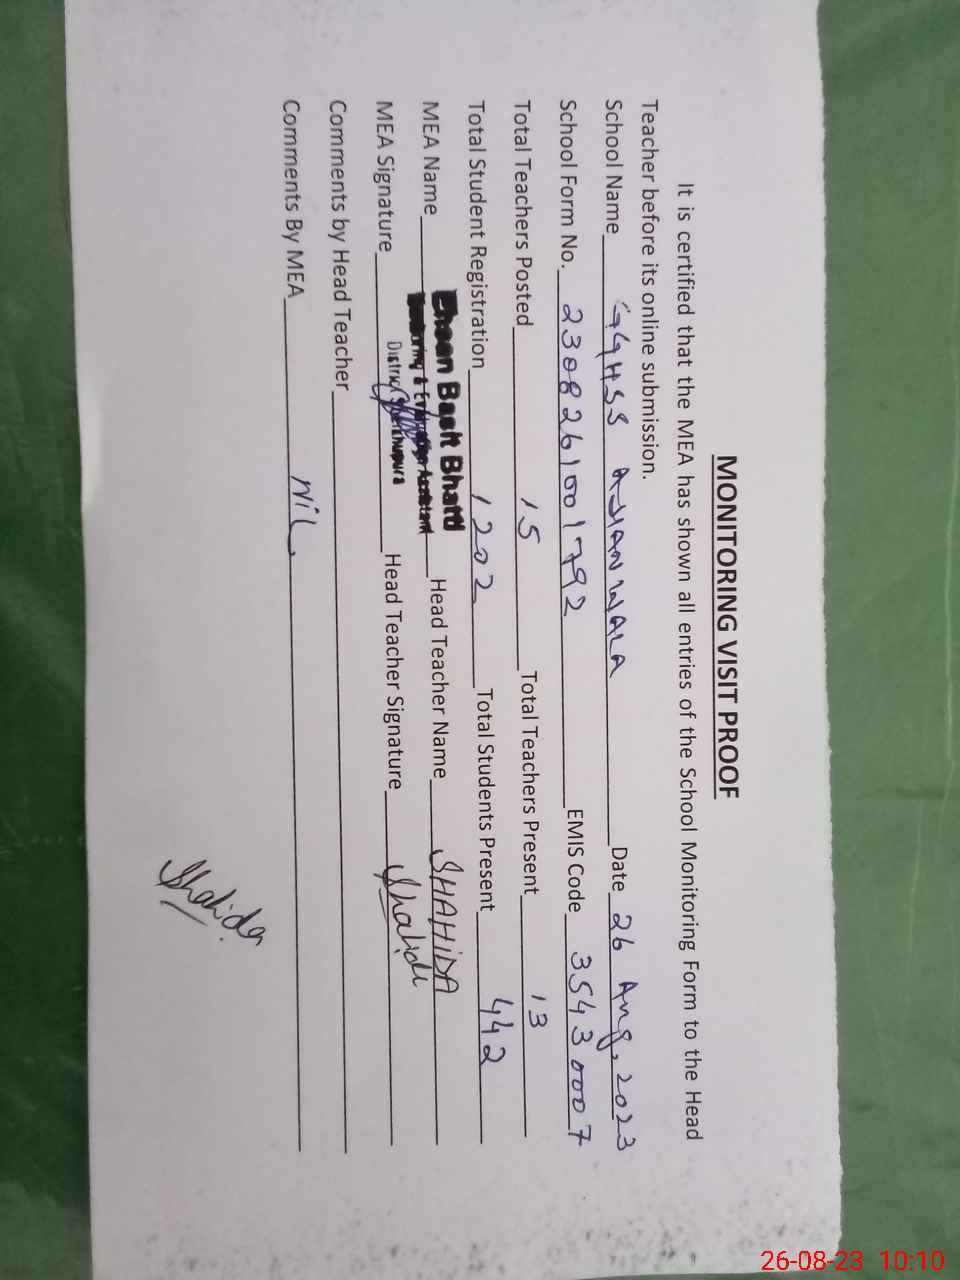 MONITORING VISIT PROOF
It is certified that the MEA has shown all entries of the School Monitoring Form to the Head
Teacher before its online submission.
School Name GGHSS AJIANWALA Date 26 Aug, 2023
School Form No. 2308261001792 EMIS Code 35430007
Total Teachers Posted 15 Total Teachers Present 13
Total Student Registration 1202 Total Students Present 442
MEA Name Bhatti Head Teacher Name SHAHIDA
& Evaluation Assistant
MEA Signature District Sheikhupura Head Teacher Signature Shahida
Comments by Head Teacher
Comments By MEA NIL
Shahida
26-08-23 10:10